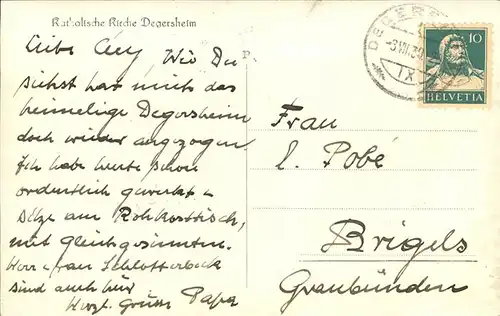 Katholische Kirche Degersheim
Liebe Cily Wie Du
siehst hat mich das
heimelige Degersheim
doch wieder angezogen.
Ich habe heute schon
ordentlich geruht u
sitze am Rohkosttisch,
mit Gleichgesinnten.
Herr u Frau Schlotterbeck
sind auch hier
Herzl. Grüsse Papa
DEGERS
IX
10
HELVETIA
Frau
C. Pobé
Brigels
Graubünden